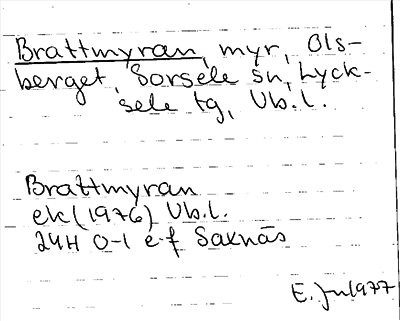 Brattmyran, myr, Ols-
berget, Sorsele sn, Lyck-
sele tg, Vb.l.
Brattmyran
ek (1976) Vb.l.
24H 0-1 e-f Saxnäs
E. Jul 1977